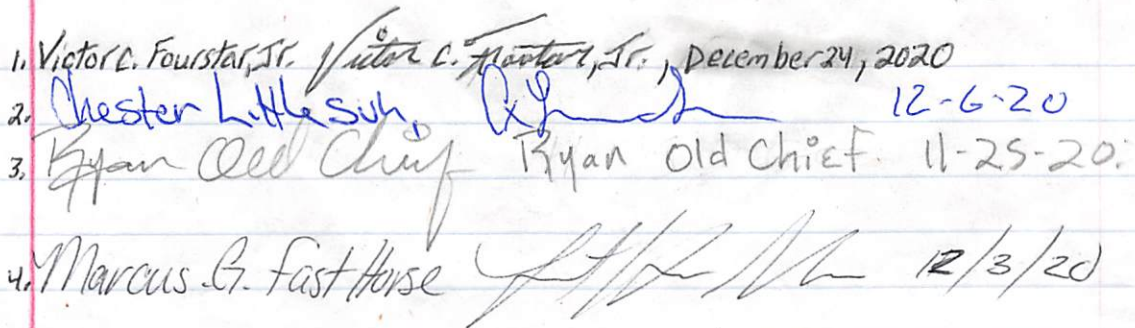 1. Victor C. Fourstar, Jr. Victor C. Fourstar, Jr., December 24, 2020
2. Chester Little sun, 12-6-20
3. Ryan Old Chief Ryan Old Chief. 11-25-20.
4. Marcus .G. Fast Horse 12/3/20